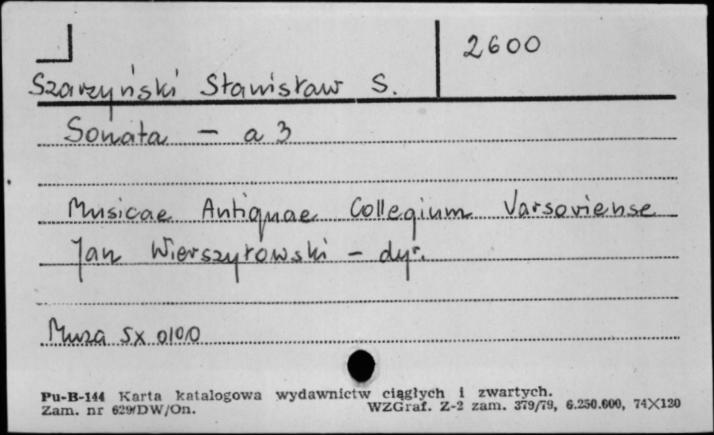 2600
Szarzyński Stanisław S.
Sonata - a 3
Musicae Antiquae Collegium Varsoviense
Jan Wierszyłowski - dyr.
Muza SX 0100
Pu-B-144 Karta katalogowa wydawnictw ciągłych i zwartych.
Zam. nr 629/DW/On. WZGraf. Z-2 zam. 379/79, 6.250.600, 74X120